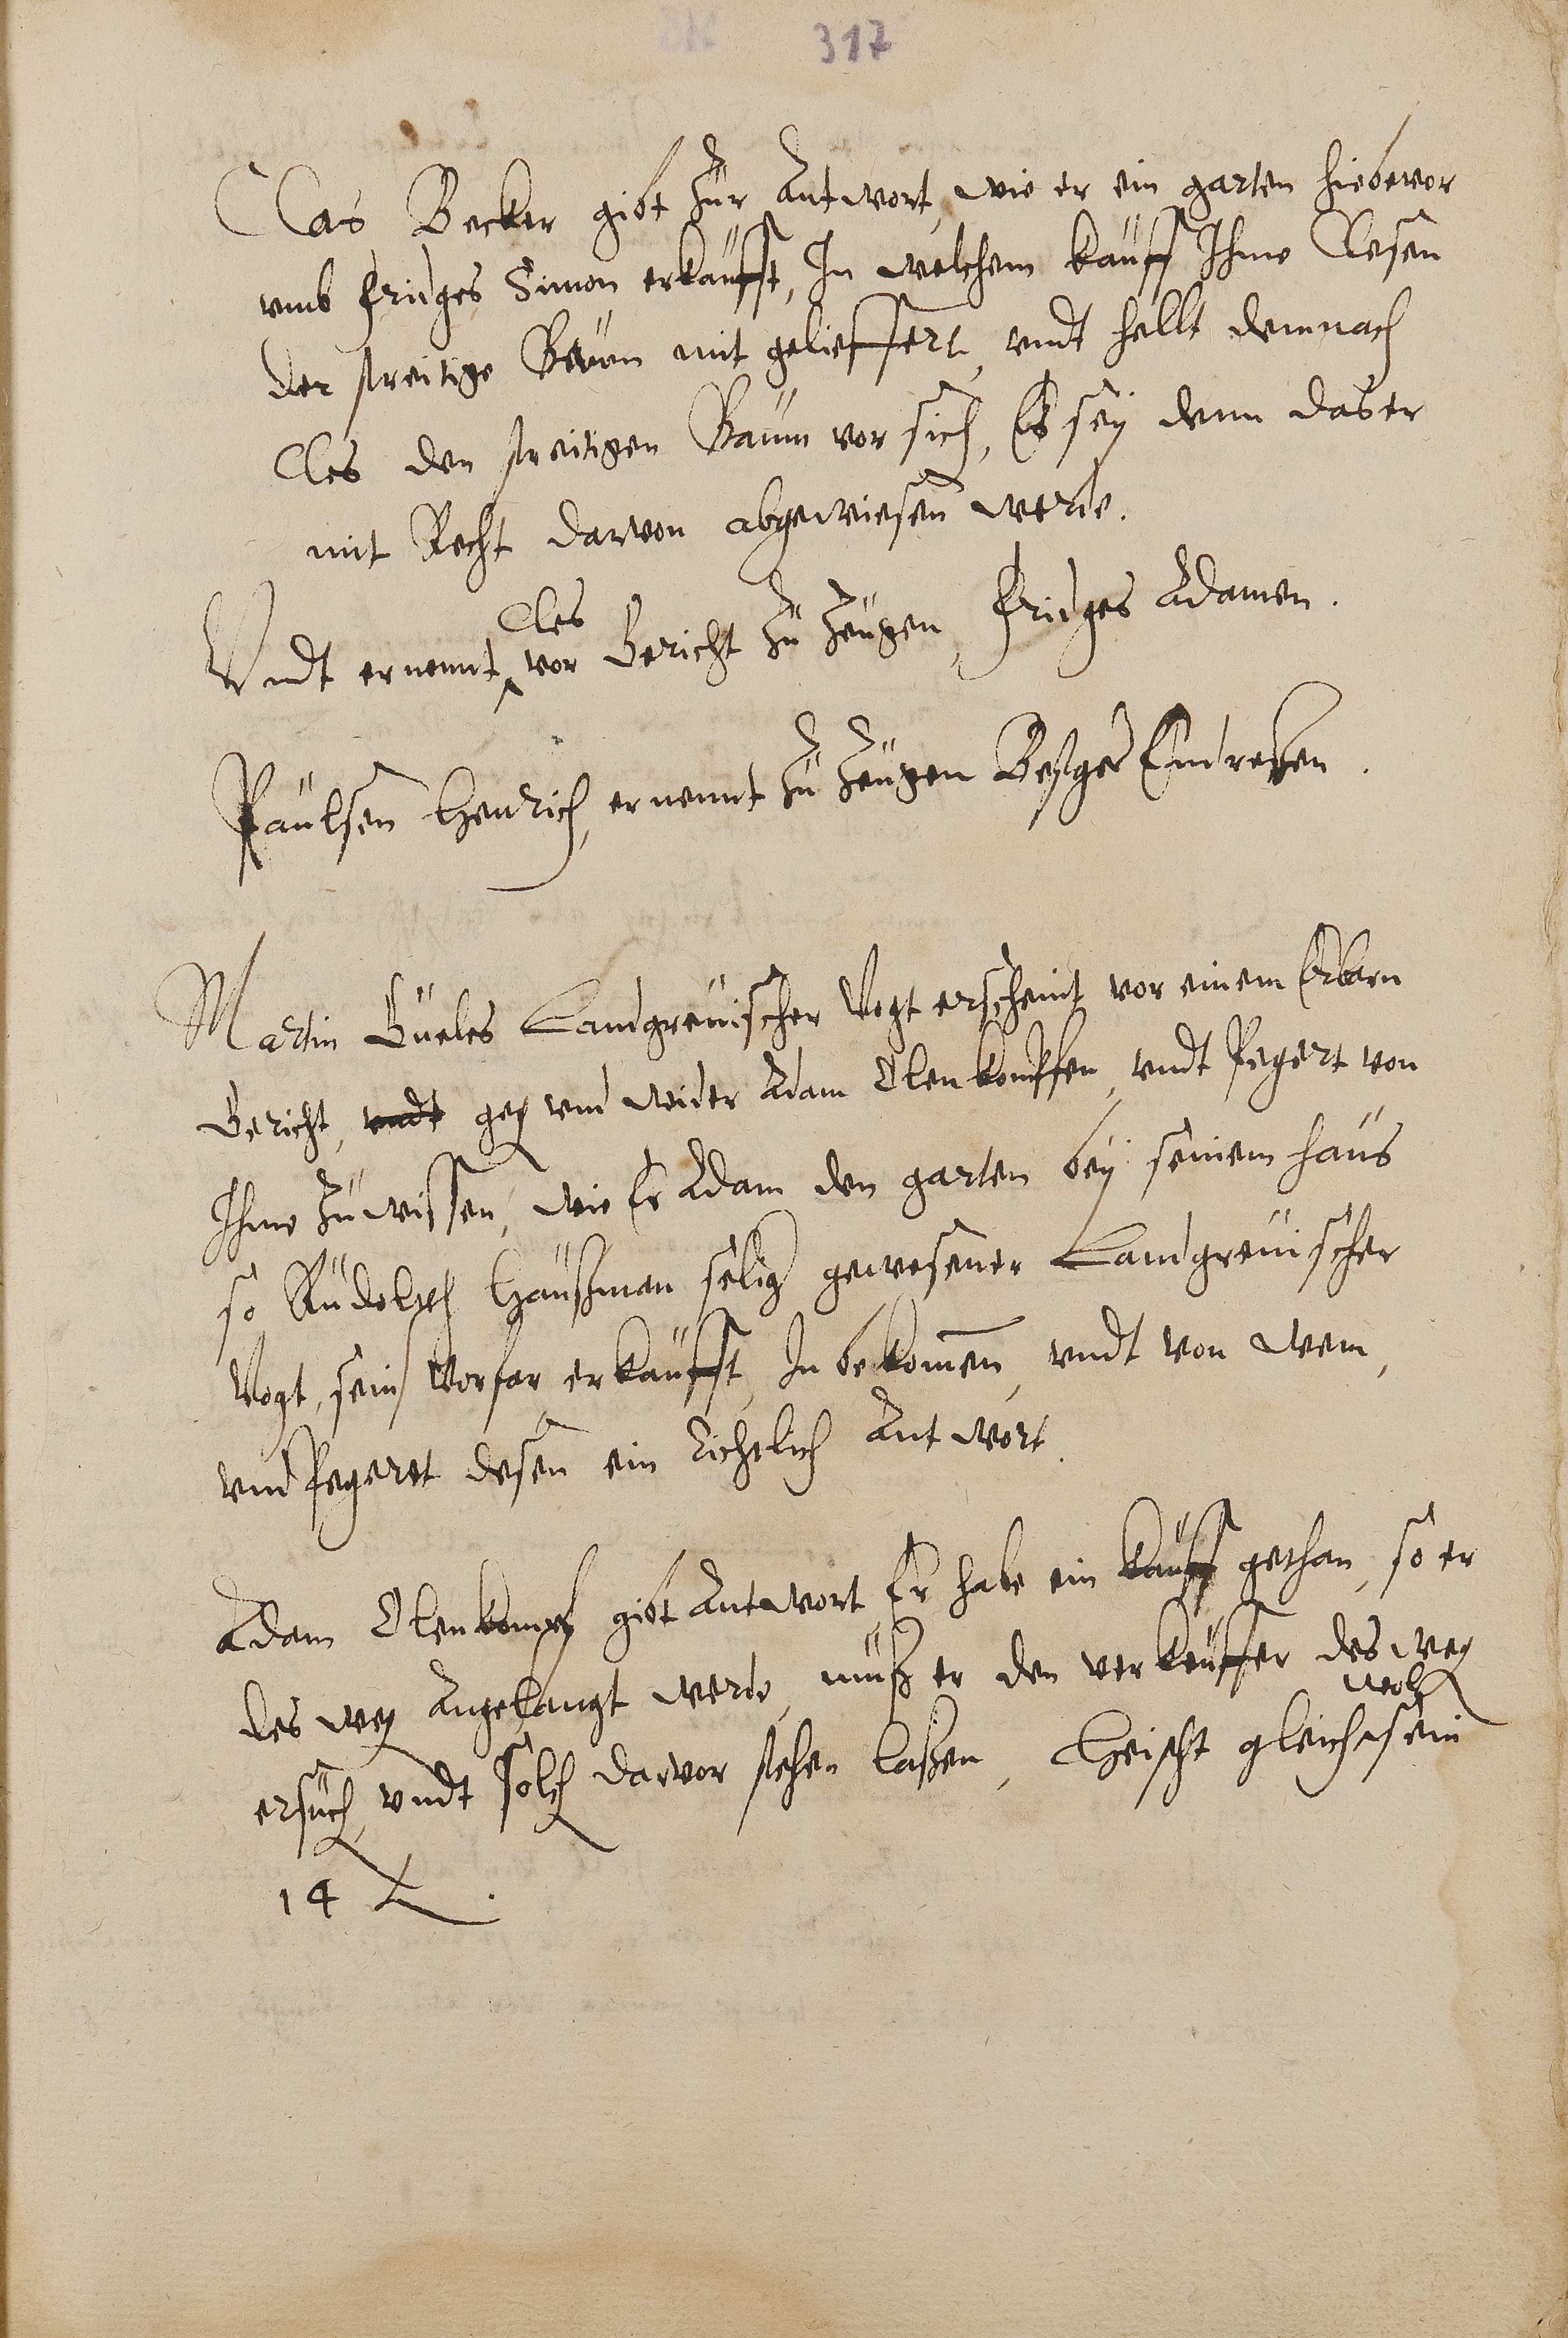 317
Clas Becker gibt zur Antwort, wie er ein garten hiebevor
vmb Fridges Simon erkaufft, In welchem kauff Ihme Clesen
der streitige Baum mit gelieffert, vndt hellt demnach
Cles den streitigen Baum vor sich, Es sey denn das er
mit Recht darvon abgewiesen werde.
Vndt ernennt Cles vor Gericht zu Zeugen, Fridges Adamen.
Paulsen Henrich, ernennt zu Zeugen Beßges Endressen.
Martin Gueles Landgreuischer Vogt erscheint vor einem Erbarn
Gericht, vndt geg vnd wider Adam Olenkompffen, vndt Begert von
Ihme zu wissen, wie Er Adam den garten bey seinem haus
so Rudolph Haußman selig gewesener Landgreuischer
Vogt, sein Vorfar, erkaufft, In bekomen, vndt von wem,
vnd Begeret desen ein Richtlich Antwort.
Adam Olenkompf gibt Antwort, Er habe ein kauff gethan, so er
des weg Angelangt werde, muß er den verkeuffer desweg
ersuch, vndt solch darvor stehen laßen, Heischt gleich wol sein
14 t.